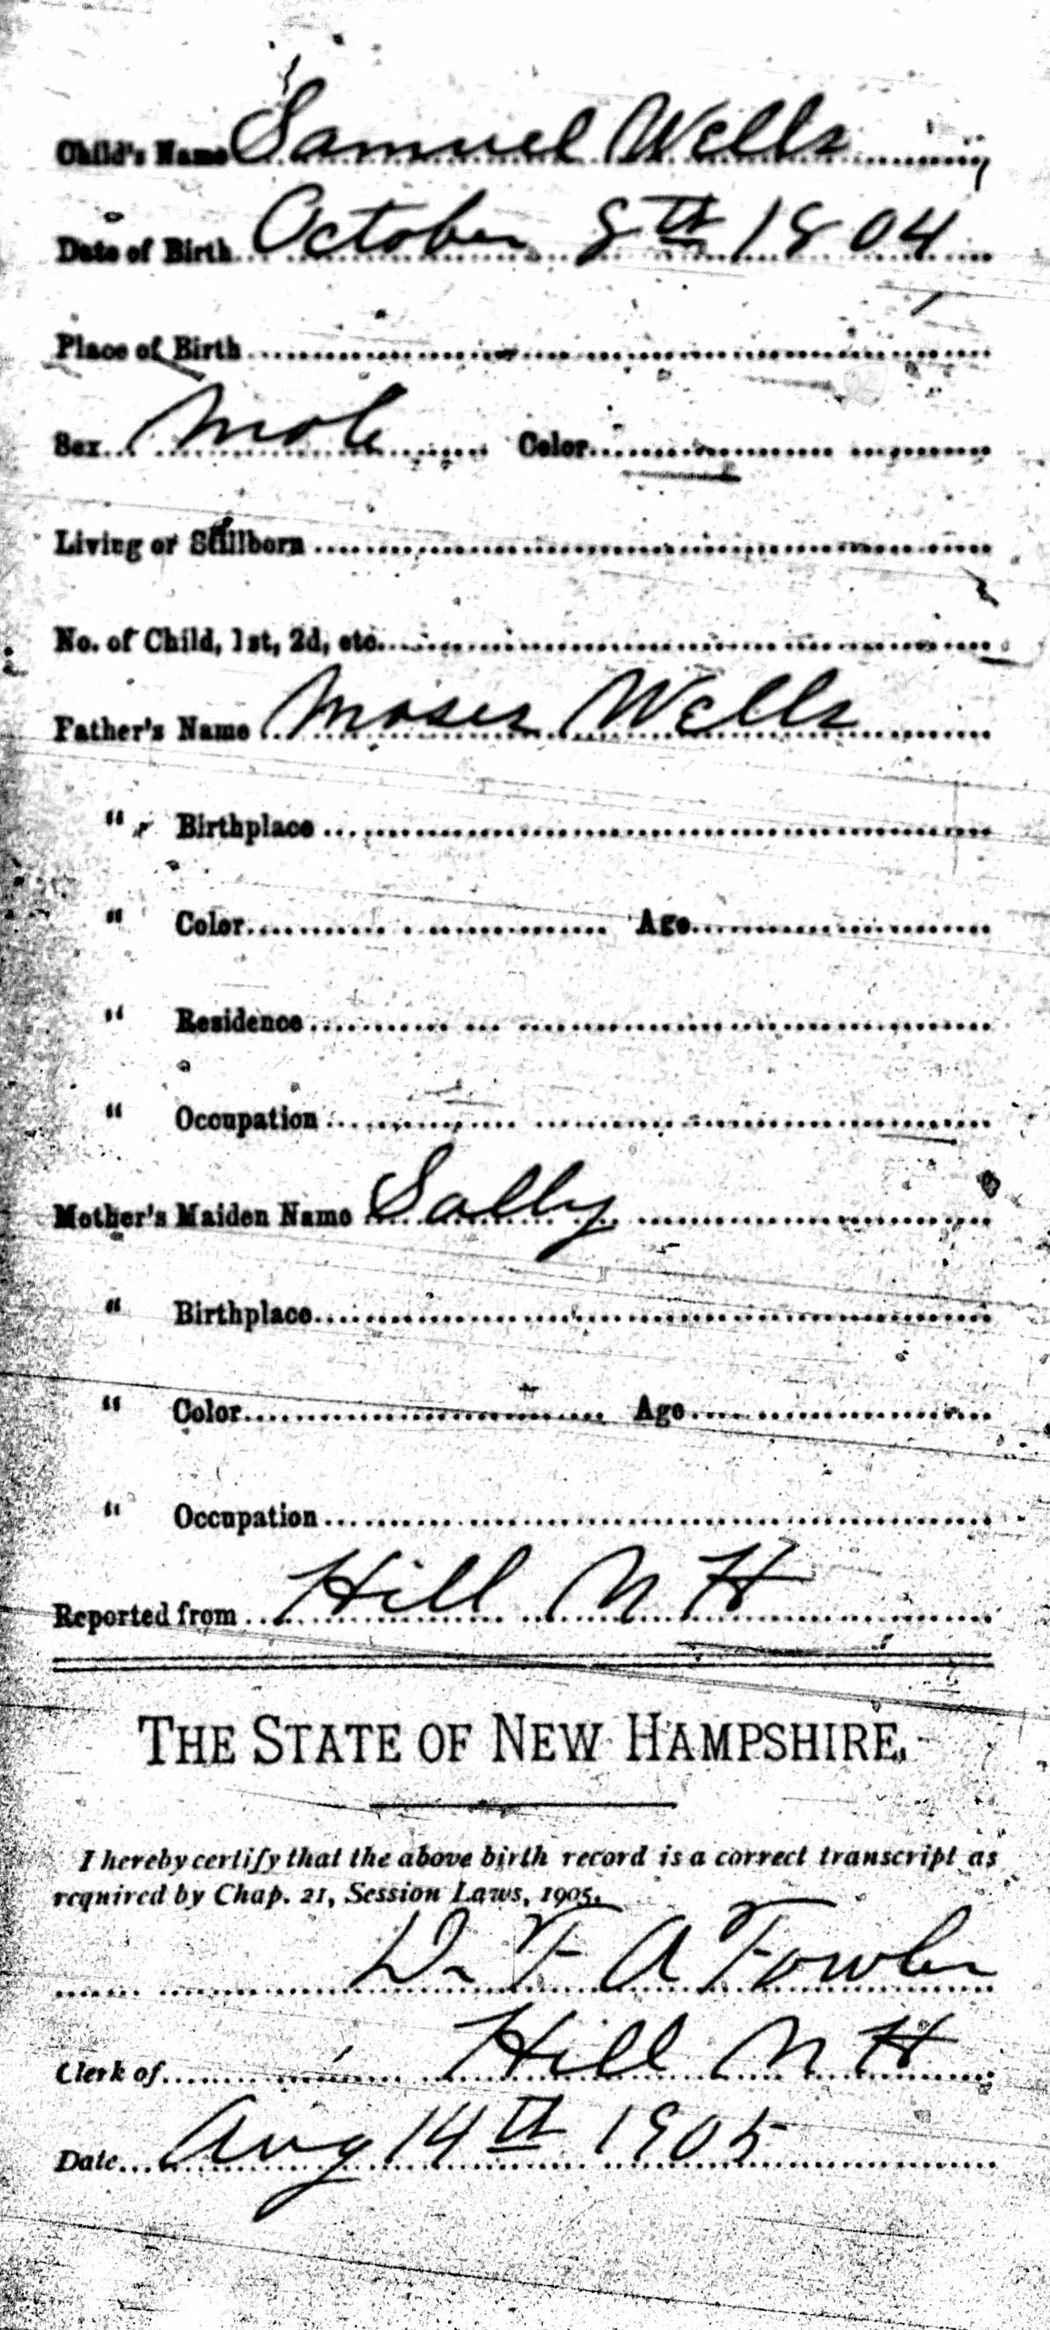 Child's Name Samuel Wells
Date of Birth October 8th 1804
Place of Birth
Sex Male Color
Living or Stillborn
No. of Child, 1st, 2d, etc.
Father's Name Moses Wells
" Birthplace
" Color Age
" Residence
" Occupation
Mother's Maiden Name Sally
" Birthplace
" Color Age
" Occupation
Reported from Hill N H
THE STATE OF NEW HAMPSHIRE.
I hereby certify that the above birth record is a correct transcript as
required by Chap. 21, Session Laws, 1905.
Dr F A Fowler
Clerk of Hill N H
Date Aug 14th 1905